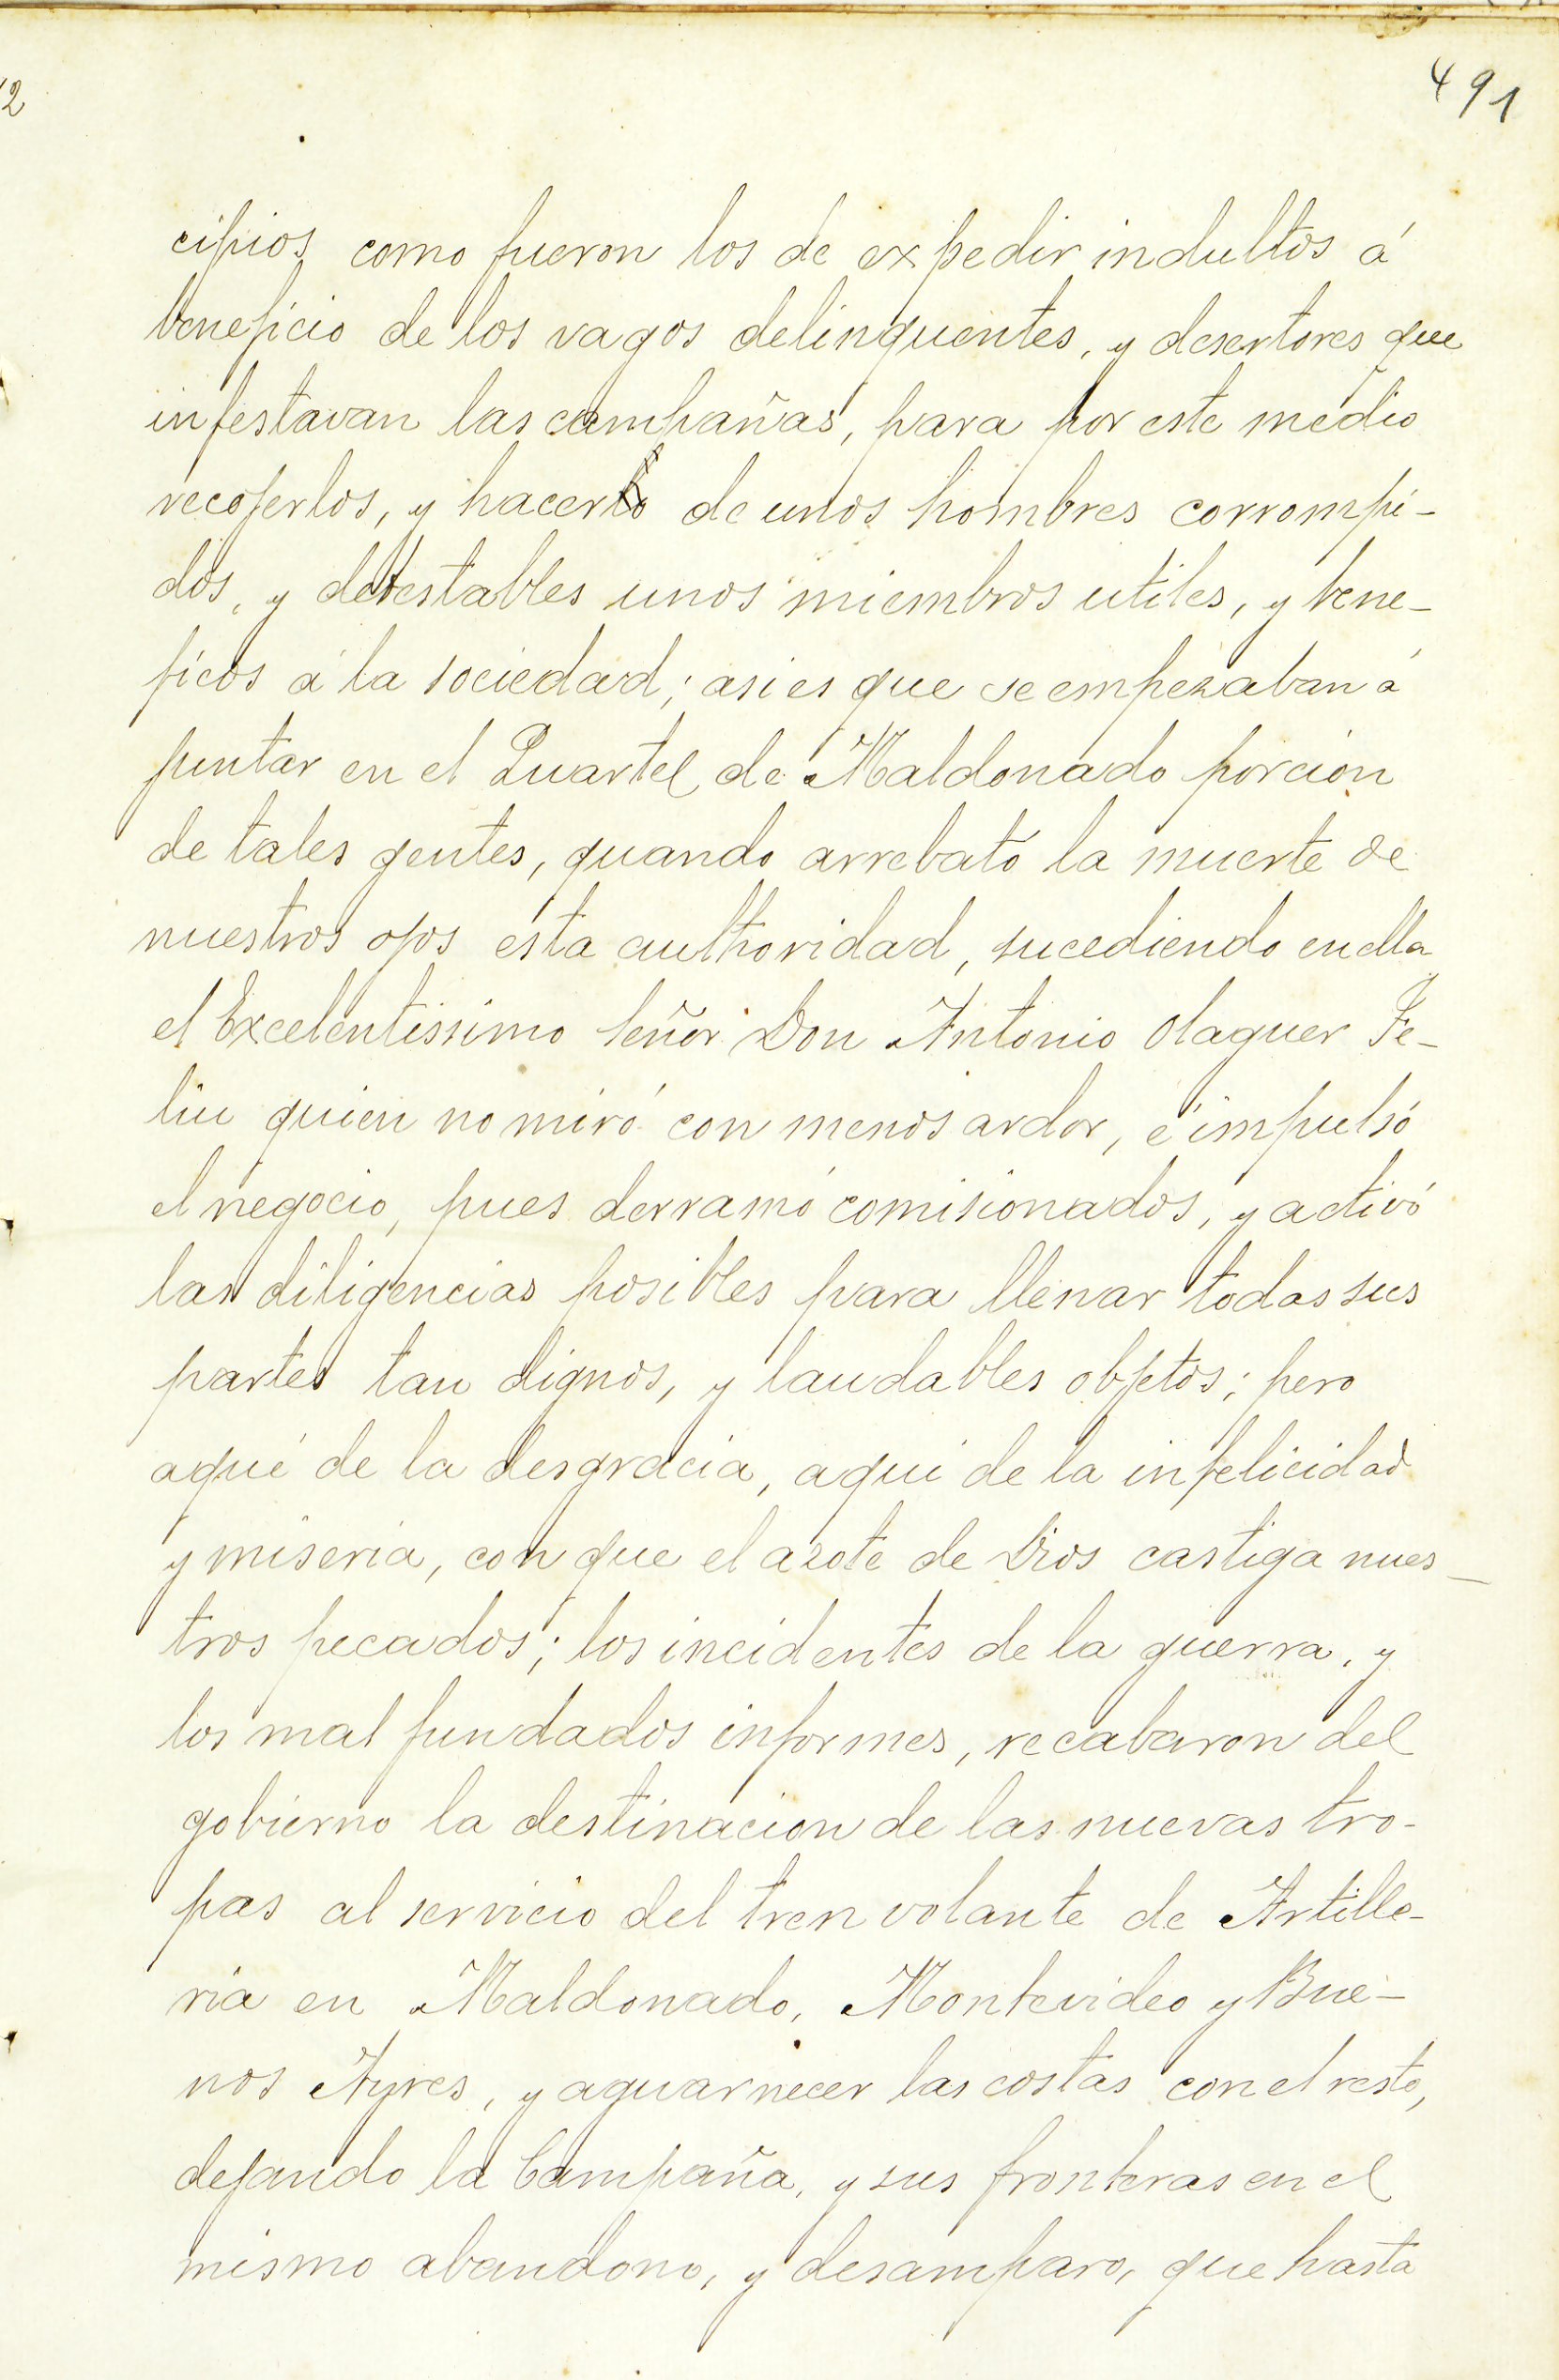 491
cipios como fueron los de expedir indultos á
beneficio de los vagos delinquentes, y desertores que
infestavan las campañas, para por este medio
recojerlos, y hacer de unos hombres corrompi-
dos, y detestables unos miembros utiles, y bene-
ficos á la sociedad; asi es que se empezaban á
juntar en el Quartel de Maldonado porcion
de tales gentes, quando arrebató la muerte de
nuestros ojos esta authoridad, sucediendo en ella
el Excelentissimo Señor Don Antonio Olaguer Fe-
liu quien no miró con menos ardor, é impulsó
el negocio, pues derramó comisionados, y activó
las diligencias posibles para llenar todas sus
partes tan dignos, y laudables objetos; pero
aqui de la desgracia, aqui de la infelicidad
y miseria, con que el azote de Dios castiga nues-
tros pecados; los incidentes de la guerra, y
los mal fundados informes, recabaron del
gobierno la destinacion de las nuevas tro-
pas al servicio del tren volante de Artille-
ria en Maldonado, Montevideo y Bue-
nos Ayres, y aguarnecer las costas con el resto,
dejando la Campaña, y sus fronteras en el
mismo abandono, y desamparo, que hasta